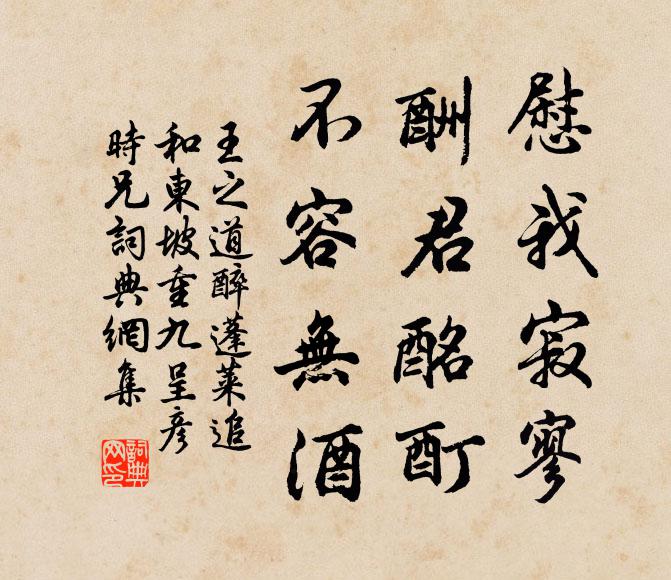 慰我寂寥
酬君酩酊
不容無酒
王之道醉蓬萊追
和東坡重九呈彥
時兄詞典網集
詞典
网印